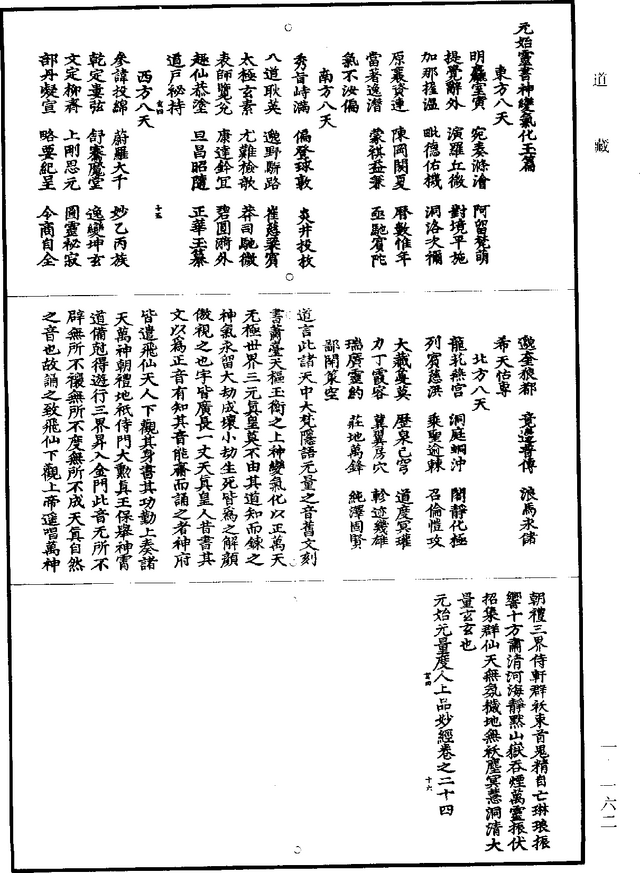 道藏
元始靈書神變氣化玉篇
東方八天
明廳室寅 宛委滌滄 阿留梵萌
提覺辭外 演羅丘微 對境平施
加那推溫 毗德佑機 洞洛次禰
原裏資連 陳岡闕夏 曆數惟年
當著逸潛 蒙棋益兼 亟馳賓陀
氣不汝偏
南方八天
秀旨峙滿 偏登球敷 炎井投枚
八道耿英 逸野駢路 崔慈梁賓
太極玄素 尤難檢敵 莽司馳微
表師覽允 康達鈐冝 碧圓濟外
趣仙恭塗 旦昌昭隨 正華玉纂
道戸秘持
西方八天
參諱投綿 蔚羅大千 妙乙丙族
乾定晝弦 舒審魔堂 逸變坤玄
文定柳齊 上剛思元 圓靈秘寂
部丹凝宣 略要紀呈 令商自全
邀奎狼都 竟邊普傳 浪馬永儲
希天估專
北方八天
龍乳燕宫 洞庭蜩沖 闇靜化極
列賓慈洪 乘聖逾棟 召倫愷攻
大藏蔓莫 歷泉已穹 道度冥璀
力丁霞容 冀翼房穴 軫迹幾雄
瑞厲靈約 莊地萬鋒 純澤固賢
鄙開策空
道言此諸天中大梵隱語无量之音舊文刻
書蕭臺天樞玉衡之上神變氣化以正萬天
无極世界三元真皇莫不由其道知而鍊之
神氣永留大劫成壞小劫生死皆爲之解顔
傲視之也字皆廣長一丈天真皇人昔書其
文以爲正音有知其音能齋而誦之者神府
皆遣飛仙天人下觀其身書其功勳上奏諸
天萬神朝禮地祇侍門大勳真王保舉神霄
道備尅得遊行三界昇入金門此音无所不
辟無所不禳無所不度無所不成天真自然
之音也故誦之致飛仙下觀上帝遥唱萬神
朝禮三界侍軒群祅束首鬼精自亡琳琅振
響十方肅清河海靜默山嶽吞煙萬靈振伏
招集群仙天無氛穢地無祅塵冥慧洞清大
量玄玄也
元始无量度人上品妙經卷之二十四
一·一六二